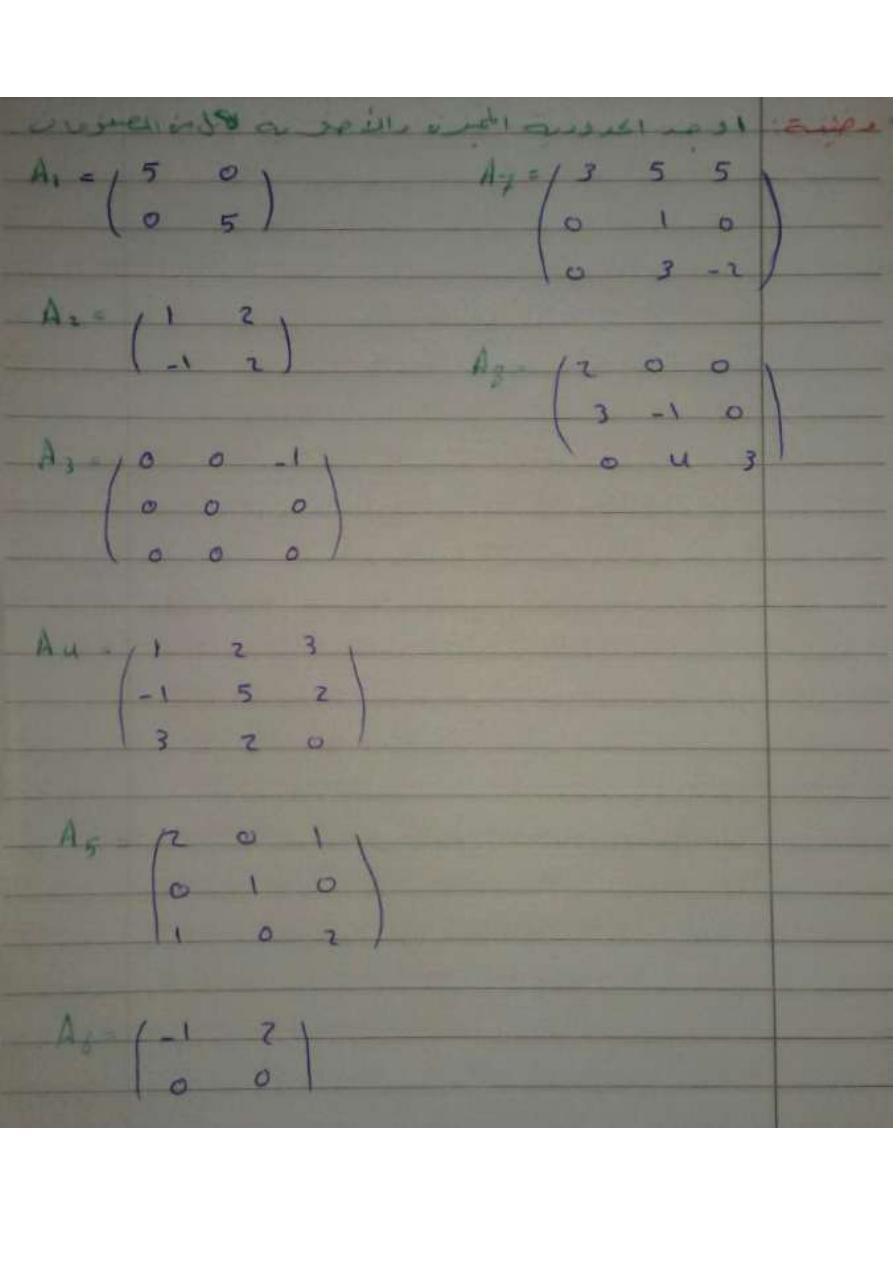 وظيفة: اوجد الحدودية المميزة والأصغرية لكل من المصفوفات
A₁ = ( 5 0
0 5 )
A₂ = ( 1 2
-1 2 )
A₃ = ( 0 0 -1
0 0 0
0 0 0 )
A₄ = ( 1 2 3
-1 5 2
3 2 0 )
A₅ = ( 2 0 1
0 1 0
1 0 2 )
A₆ = ( -1 2
0 0 )
A₇ = ( 3 5 5
0 1 0
0 3 -2 )
A₈ = ( 2 0 0
3 -1 0
0 4 3 )